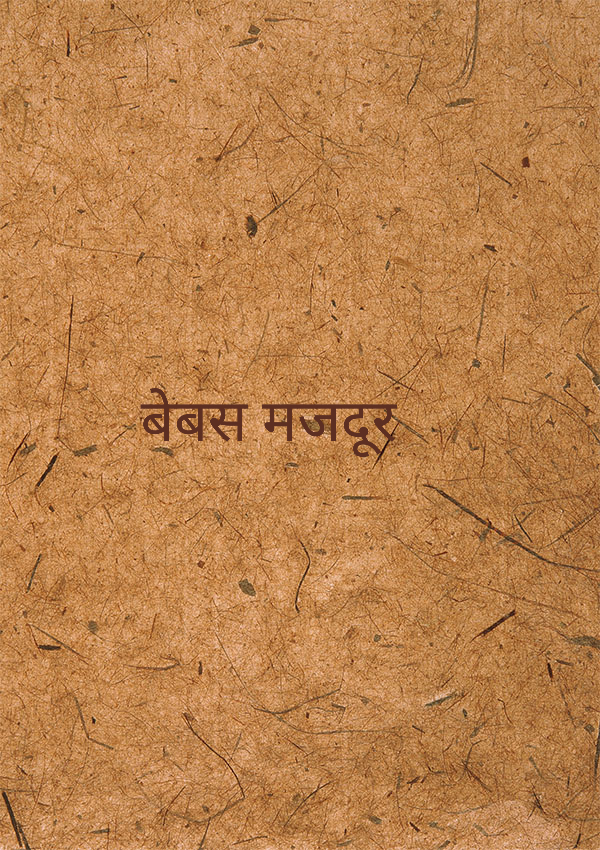 बेबस मजदूर